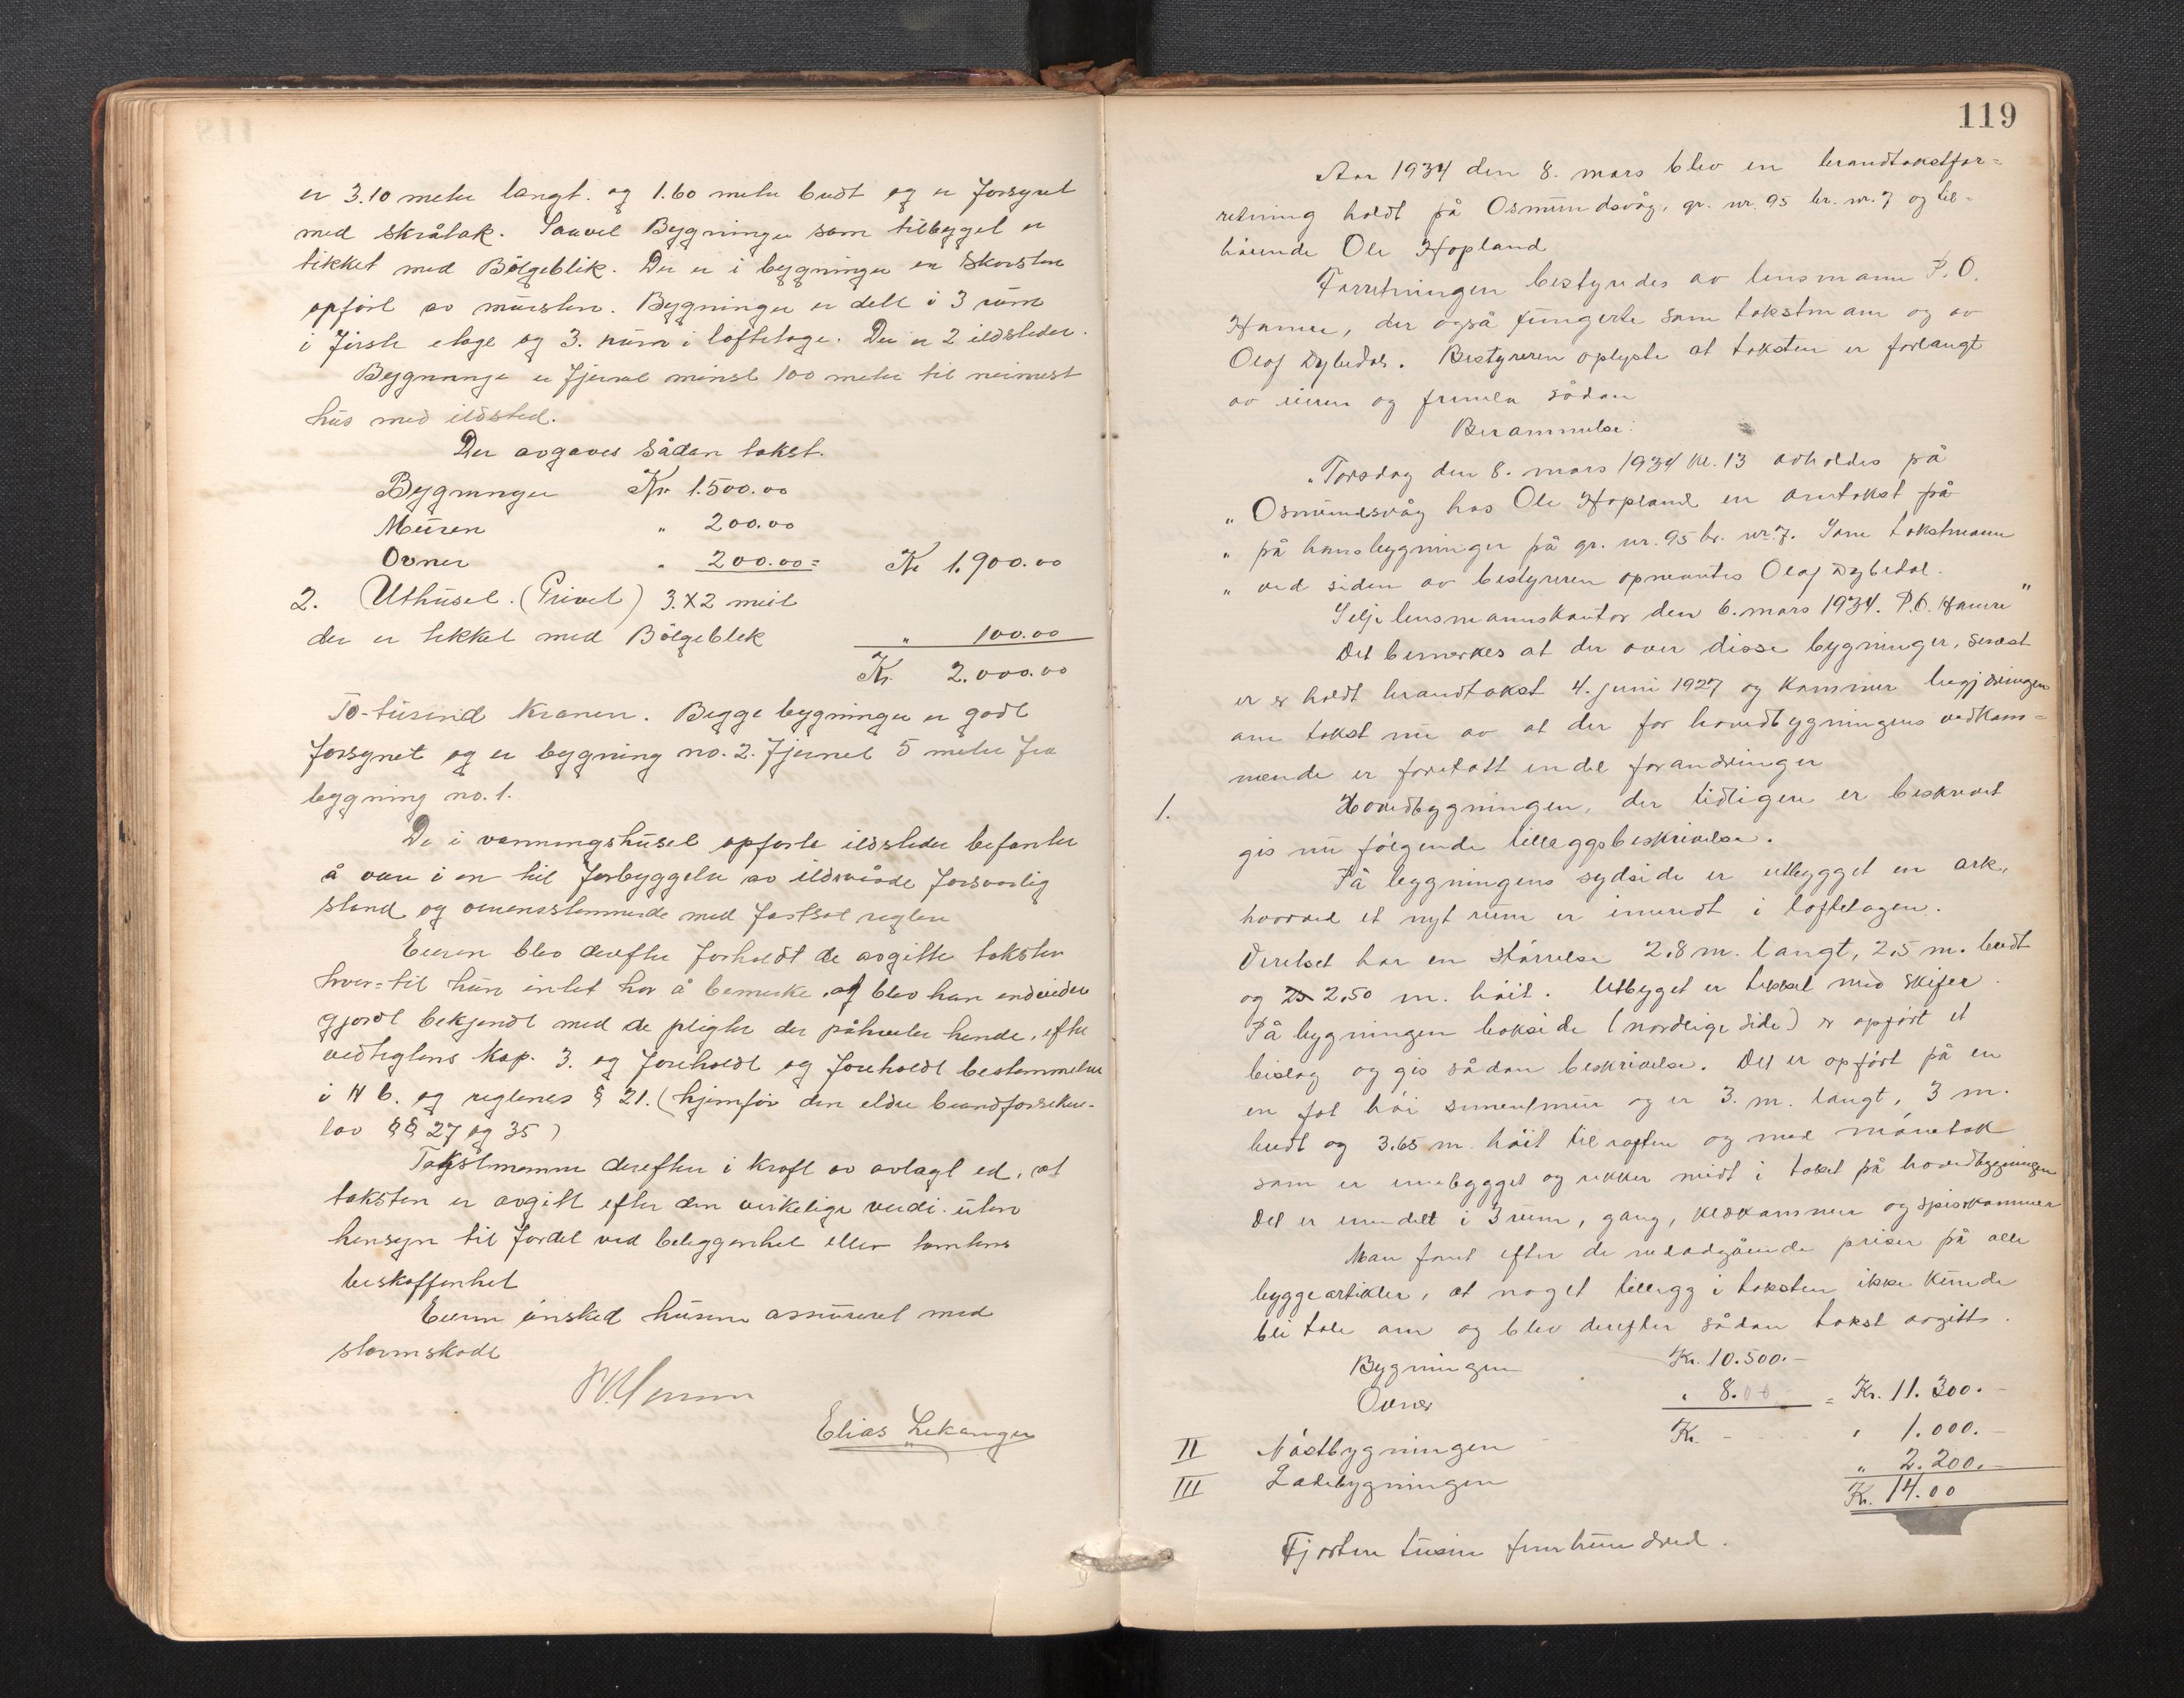 er 3.10 meter langt. og 1.60 meter bredt og er forsynet
med skråtak. Saavel Bygningen som tilbyget er
tekket med Bölgeblik. Der er i bygningen en Skorsten
opfört av mursten. Bygningen er delt i 3 rum
i förste etage og 3. rum i loftetage. Der er 2 ildsteder.
Bygningen er fjernet minst 100 meter til nermest
hus med ildsted.
Der avgaves Sådan takst.
Bygningen Kr 1.500.00
Muren " 200.00
Ovner " 200.00 = Kr 1.900.00
2. Uthuset. (Privet) 3. X 2 meit
der er tekket med Bölgeblek " 100.00
Kr. 2.000.00
To-tusind Kroner. Begge bygninger er godt
forsynet og er bygning no. 2. fjernet 5 meter fra
bygning no. 1.
De i vaaningshuset opförte ildsteder befantes
å være i en til forbyggelse av ildsvåde forsvarlig
stand og overensstemmende med fastsat regler
Eieren blev derefter forholdt de avgitte takster
hver=til hun intet har å bemerke. og blev han endvider
gjordt bekjendt med de pligter der påhviler hende, efter
vedtegtens Kap. 3. og foreholdt og foreholdt bestemmelser
i N 6. og reglenes § 21. (hjemför den eldre brandforsikr-
lov §§ 27 og 35)
Takstmennene derefter i kraft av avlagt ed, at
taksten er avgitt efter den virkelige verdi. uten
hensyn til fordel ved beleggenhet eller tomtens
beskaffenhet
Eieren önsked husene assureret med
stormskade
Elias Lekanger
119
Aar 1934 den 8. mars blev en brandtakstfor=
retning holdt på Osmundsvåg, gr. nr. 95 br. nr. 7 og til=
hörende Ole Hopland
Forretningen bestyredes av lensmann P. O.
Hamre, der også fungerte som takstmann og av
Olaf Dybedal. Bestyreren oplyste at taksten er forlangt
av eieren og fremla sådan
Berammelse:
"Torsdag den 8. mars 1934 kl. 13 avholdes på
" Osmundsvåg hos Ole Hopland en omtakst på
" på hans bygninger på gr. nr. 95 br. nr. 7. Som takstmann
" ved siden av bestyreren opnevntes Olaf Dybedal.
Selje lensmannskontor den 6. mars 1934. P.O. Hamre "
Det bemerkes at der over disse bygninger, senest
er er holdt brandtakst 4. juni 1927 og kommer begjæringen
om takst nu av at der for hovedbygningens vedkom=
mende er foretatt endel forandringer
1. Hovedbygningen, der tidligere er beskrevet
gis nu følgende tilleggsbeskrivelse.
På bygningens sydside er utbygget en ark,
hvorved et nyt rum er innredt i loftetagen.
Verelset har en störrelse 2.8 m. langt, 2.5 m. bredt
og 25 2.50 m. höit. Utbyget er tekket med skifer.
På bygningen bakside (nordlige side) er opfört et
beislag og gis sådan beskrivelse. Det er opfört på en
en fot höi sementmur og er 3. m. langt, 3 m.
bredt og 3.65 m. höit til raften og med mönetak
som er innebygget og rekker midt i taket på hovedbygningen
Det er inndelt i 3 rum, gang, kledkammer og spiskammer
Man fant efter de nedadgående priser på alle
byggeartikler, at noget tillegg i taksten ikke kunde
bli tale om og blev derefter sådan takst avgitt.
Bygningen Kr. 10.500.-
Ovner " 8.00 = Kr. 11.300.-
II Nöstbygningen Kr. - " 1.000.-
III Ladebygningen " 2.200.-
Kr. 14.00
Fjorten tusin femhundred.